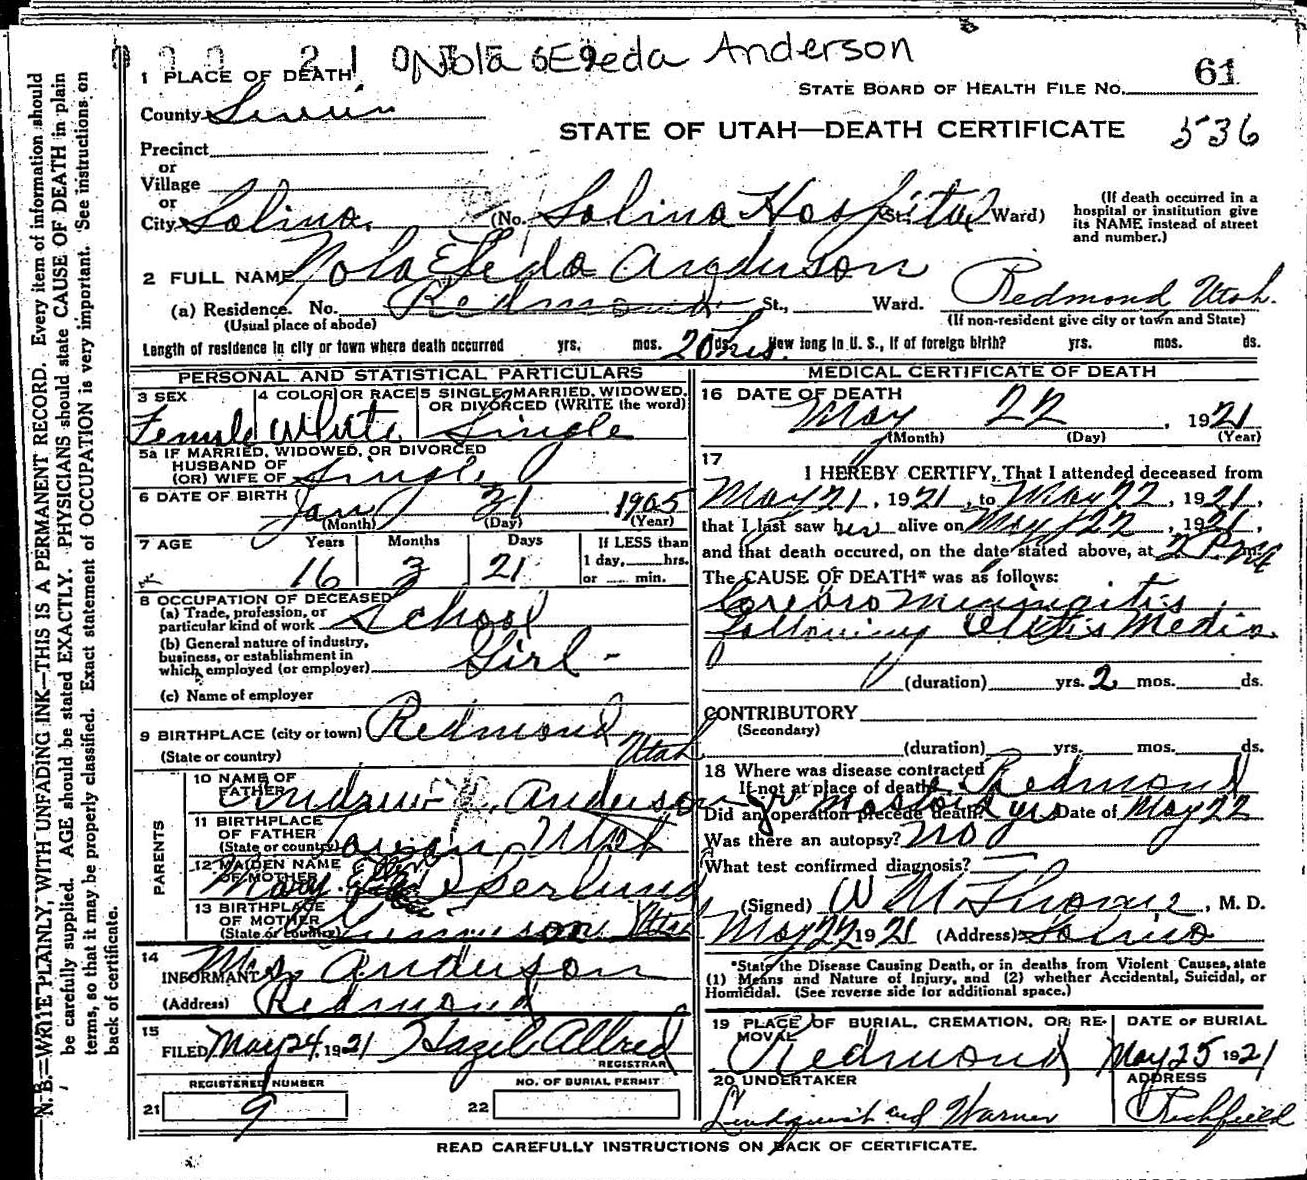 Nola Eleda Anderson
1 PLACE OF DEATH
STATE BOARD OF HEALTH FILE No. 61
County Sevier
STATE OF UTAH—DEATH CERTIFICATE 536
Precinct
or
Village
or
City Salina. (No. Salina Hospital St.; Ward)
(If death occurred in a hospital or institution give its NAME instead of street and number.)
2 FULL NAME Nola Eleda Anderson
(a) Residence. No. Redmond St., Ward. Redmond Utah.
(Usual place of abode) (If non-resident give city or town and State)
Length of residence in city or town where death occurred yrs. mos. 20 ds. hrs. How long in U. S., if of foreign birth? yrs. mos. ds.
PERSONAL AND STATISTICAL PARTICULARS
3 SEX Female
4 COLOR OR RACE White
5 SINGLE, MARRIED, WIDOWED, OR DIVORCED (WRITE the word) Single
5a IF MARRIED, WIDOWED, OR DIVORCED
HUSBAND OF
(OR) WIFE OF Single
6 DATE OF BIRTH Jan 31 1905
(Month) (Day) (Year)
7 AGE Years Months Days If LESS than
1 day, hrs.
or min.
16 3 21
8 OCCUPATION OF DECEASED
(a) Trade, profession, or particular kind of work School
(b) General nature of industry, business, or establishment in which employed (or employer) Girl -
(c) Name of employer
9 BIRTHPLACE (city or town) Redmond
(State or country) Utah
PARENTS
10 NAME OF FATHER Andrew Anderson Jr
11 BIRTHPLACE OF FATHER (State or country) Utah
12 MAIDEN NAME OF MOTHER Mary Ellen
13 BIRTHPLACE OF MOTHER (State or country) Gunnison Utah
14 INFORMANT Mrs Anderson
(Address) Redmond
15 FILED May 24, 1921 Hazel Allred
REGISTRAR
REGISTERED NUMBER
21 9
NO. OF BURIAL PERMIT
22
MEDICAL CERTIFICATE OF DEATH
16 DATE OF DEATH
May 22, 1921
(Month) (Day) (Year)
17
I HEREBY CERTIFY, That I attended deceased from
May 21, 1921, to May 22, 1921,
that I last saw her alive on May 22, 1921,
and that death occured, on the date stated above, at 2 P m.
The CAUSE OF DEATH* was as follows:
Cerebro Meningitis
following Otitis Media
(duration) yrs. 2 mos. ds.
CONTRIBUTORY
(Secondary)
(duration) yrs. mos. ds.
18 Where was disease contracted
If not at place of death? Redmond
Did an operation precede death? mastoid yes Date of May 22
Was there an autopsy? no
What test confirmed diagnosis?
(Signed) W M , M. D.
May 22 1921 (Address) Salina
*State the Disease Causing Death, or in deaths from Violent Causes, state
(1) Means and Nature of Injury, and (2) whether Accidental, Suicidal, or
Homicidal. (See reverse side for additional space.)
19 PLACE OF BURIAL, CREMATION, OR REMOVAL Redmond
DATE OF BURIAL May 25 1921
20 UNDERTAKER Lindquist and Warner
ADDRESS Richfield
READ CAREFULLY INSTRUCTIONS ON BACK OF CERTIFICATE.
N. B.—WRITE PLAINLY, WITH UNFADING INK—THIS IS A PERMANENT RECORD. Every item of information should
be carefully supplied. AGE should be stated EXACTLY. PHYSICIANS should state CAUSE OF DEATH in plain
terms, so that it may be properly classified. Exact statement of OCCUPATION is very important. See instructions on
back of certificate.